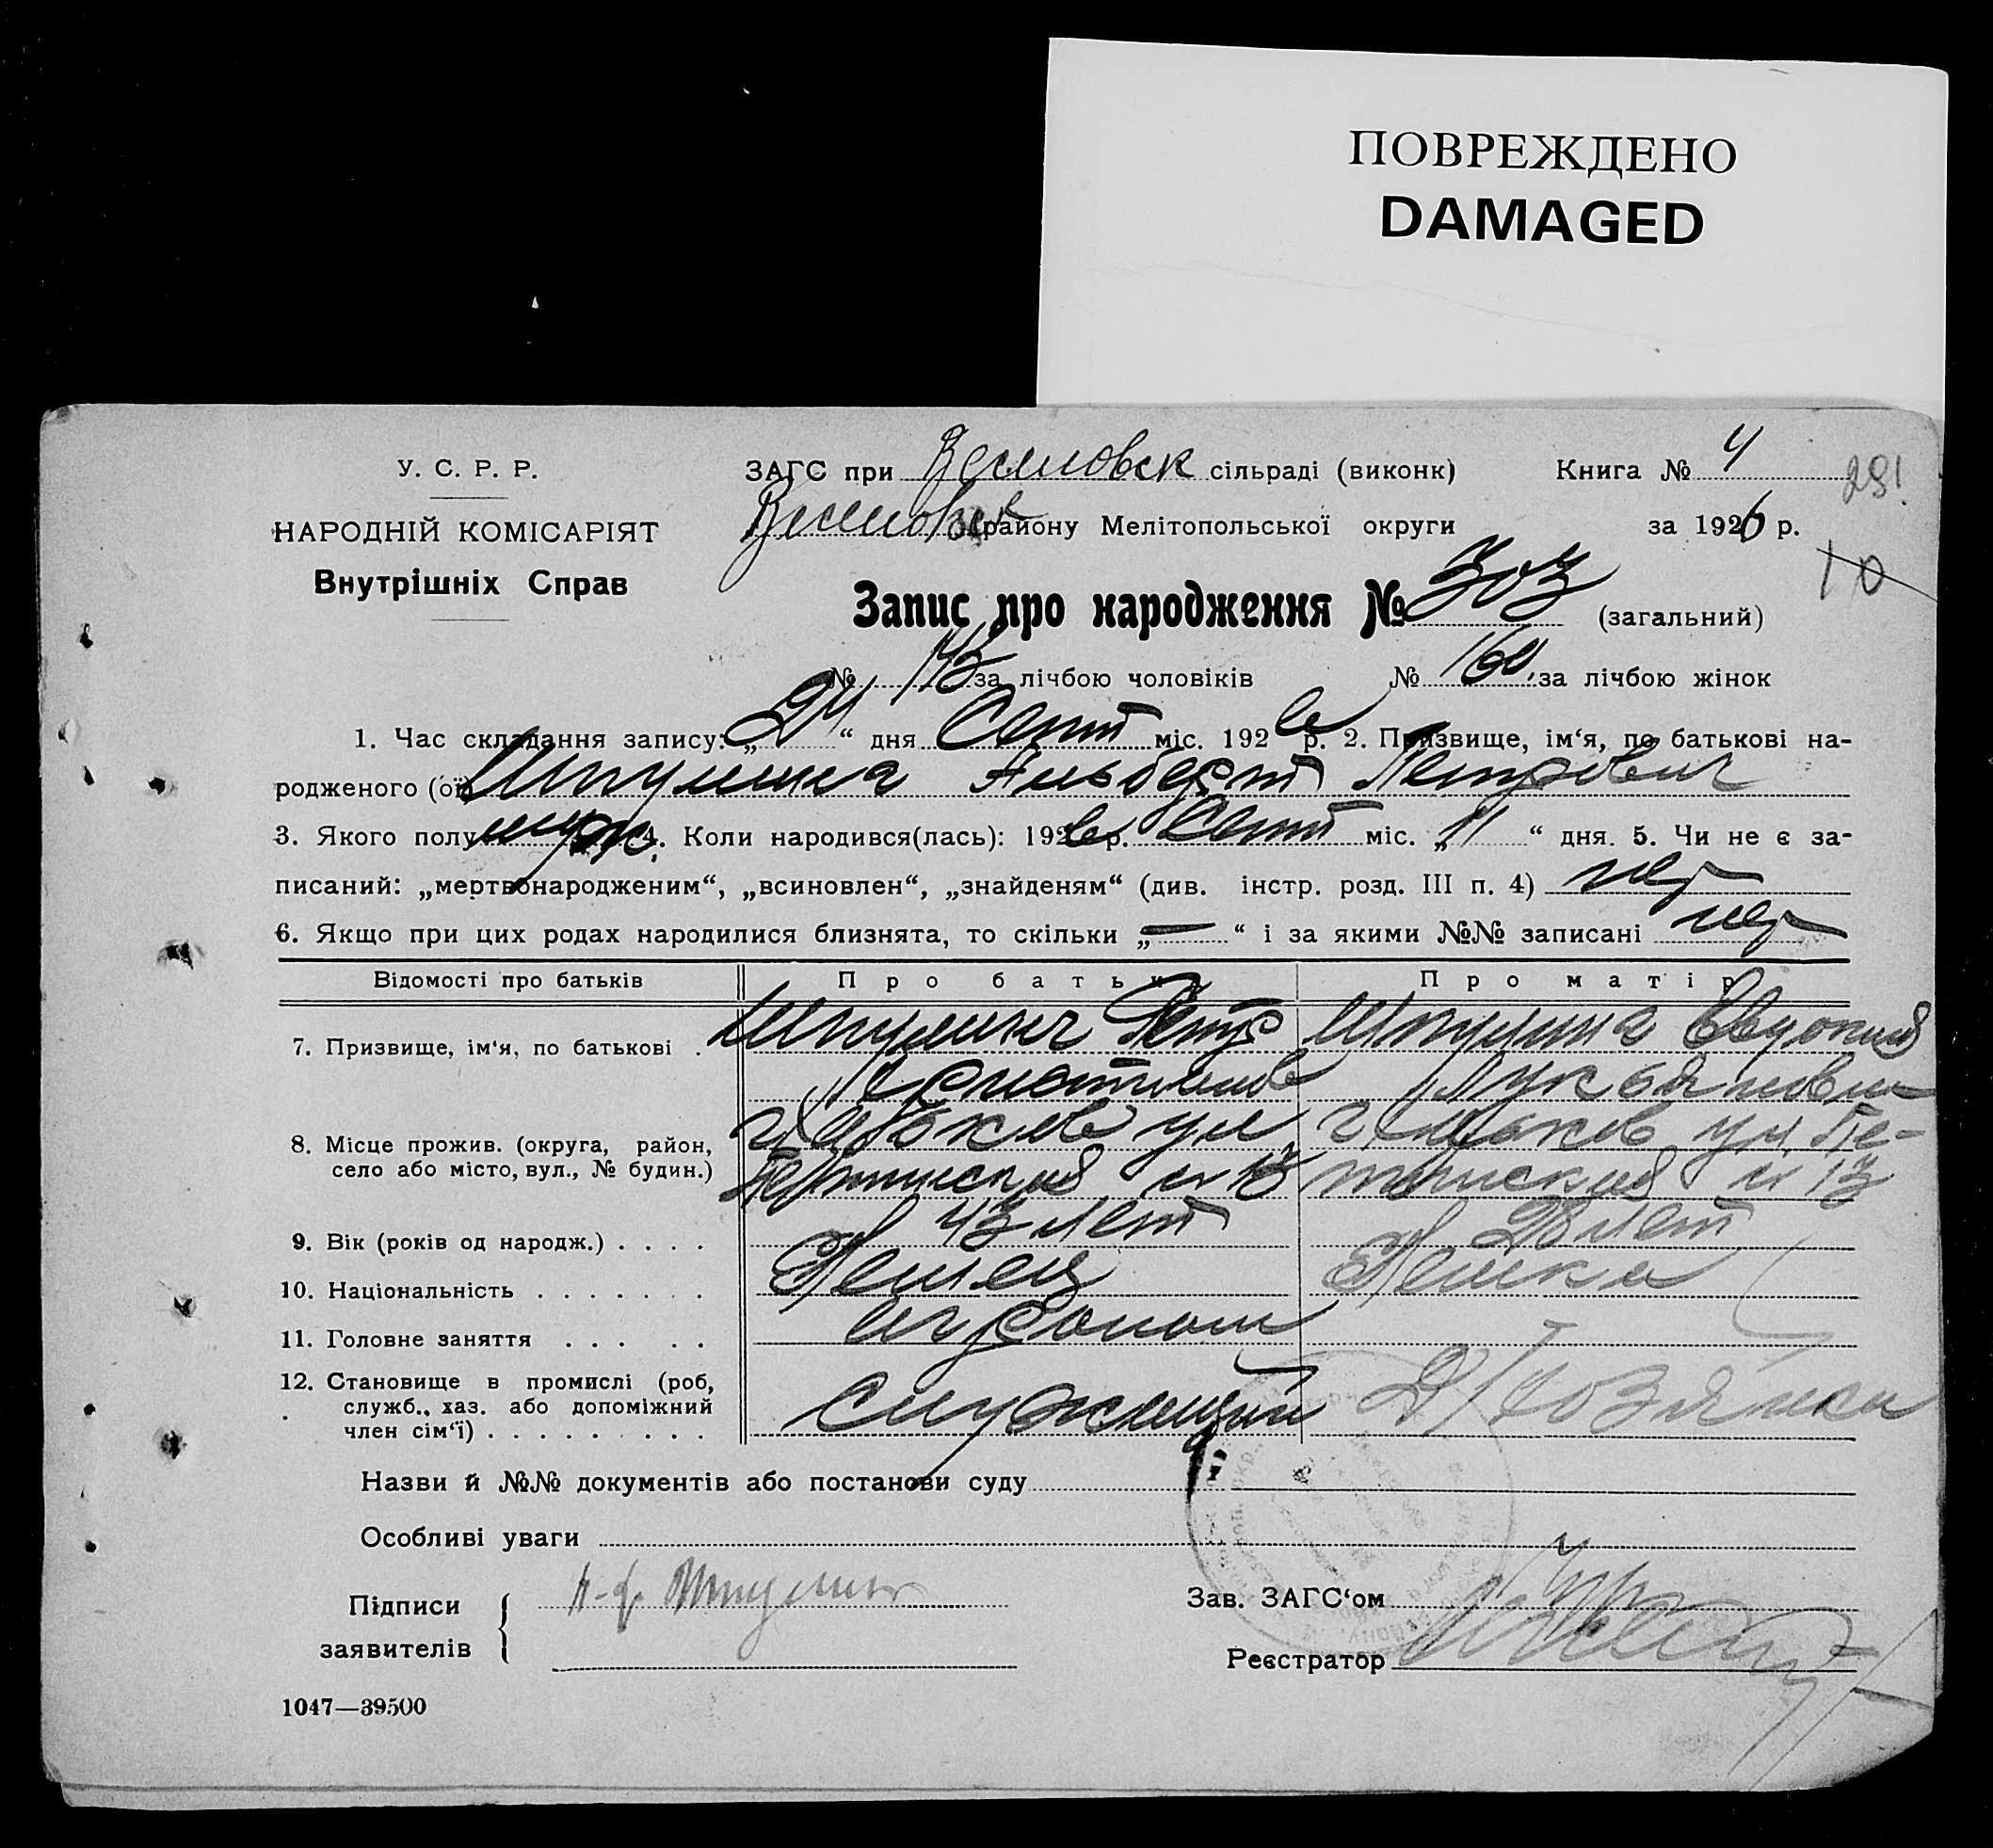 ПОВРЕЖДЕНО
DAMAGED
У. С. Р. Р.
НАРОДНІЙ КОМІСАРІЯТ
Внутрішніх Справ
ЗАГС при сільраді (виконк) Книга № 4
291
району Мелітопольської округи за 1926 р.
10
Запис про народження № 303 (загальний)
№ 143 за лічбою чоловіків № 160 за лічбою жінок
1. Час складання запису: „24“ дня Сент міс. 1926 р. 2. Призвище, ім‘я, по батькові на-
родженого (ої) Альберт Петрович
3. Якого полу муж. 4. Коли народився(лась): 1926 р. Сент міс. „11“ дня. 5. Чи не є за-
писаний: „мертвонародженим“, „всиновлен“, „знайденям“ (див. інстр. розд. III п. 4) нет
6. Якщо при цих родах народилися близнята, то скільки „—“ і за якими №№ записані нет
Відомості про батьків Про батька Про матір
7. Призвище, ім‘я, по батькові . Петр Евдокия
Лукьяновна
8. Місце прожив. (округа, район, ул ул
село або місто, вул., № будин.) 13 13
9. Вік (років од народж.) . . . . 43 лет 28 лет
10. Національність . . . . . . . Немец Немка
11. Головне заняття . . . . . Агроном
12. Становище в промислі (роб,
служб., хаз. або допоміжний Служащий Д/Хозяйка
член сім‘ї) . . . . . . . . .
Назви й №№ документів або постанови суду
Особливі уваги
Підписи
заявителів
Зав. ЗАГС‘ом
Реєстратор
1047—39500